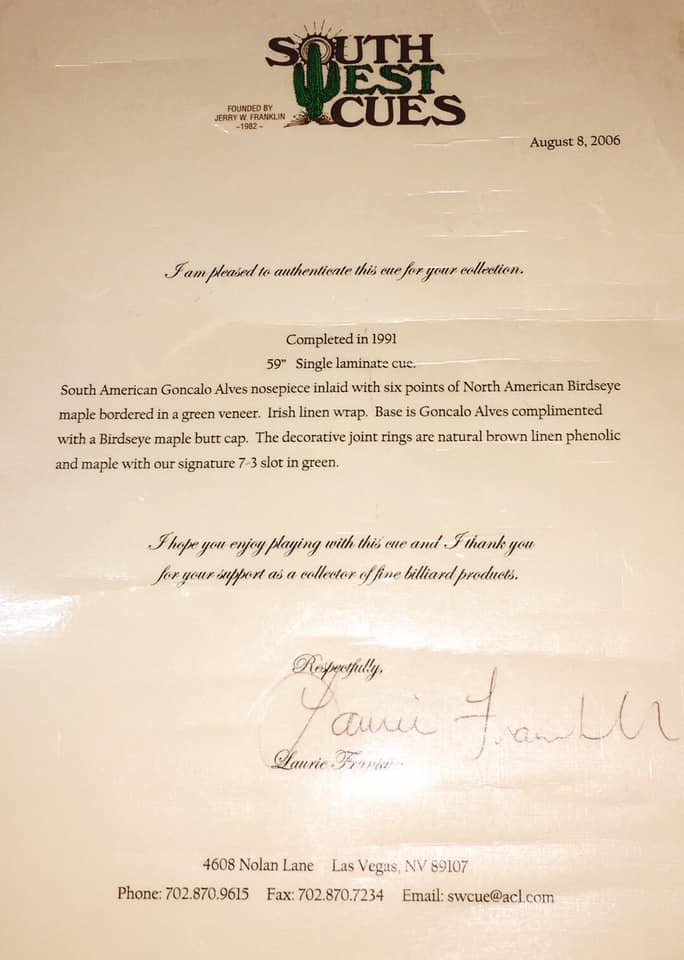 SOUTH
WEST
CUES
FOUNDED BY
JERRY W. FRANKLIN
~1982~
August 8, 2006
I am pleased to authenticate this cue for your collection.
Completed in 1991
59” Single laminate cue.
South American Goncalo Alves nosepiece inlaid with six points of North American Birdseye
maple bordered in a green veneer. Irish linen wrap. Base is Goncalo Alves complimented
with a Birdseye maple butt cap. The decorative joint rings are natural brown linen phenolic
and maple with our signature 7-3 slot in green.
I hope you enjoy playing with this cue and I thank you
for your support as a collector of fine billiard products.
Respectfully,
Laurie Franklin
Laurie Franklin
4608 Nolan Lane Las Vegas, NV 89107
Phone: 702.870.9615 Fax: 702.870.7234 Email: swcue@aol.com